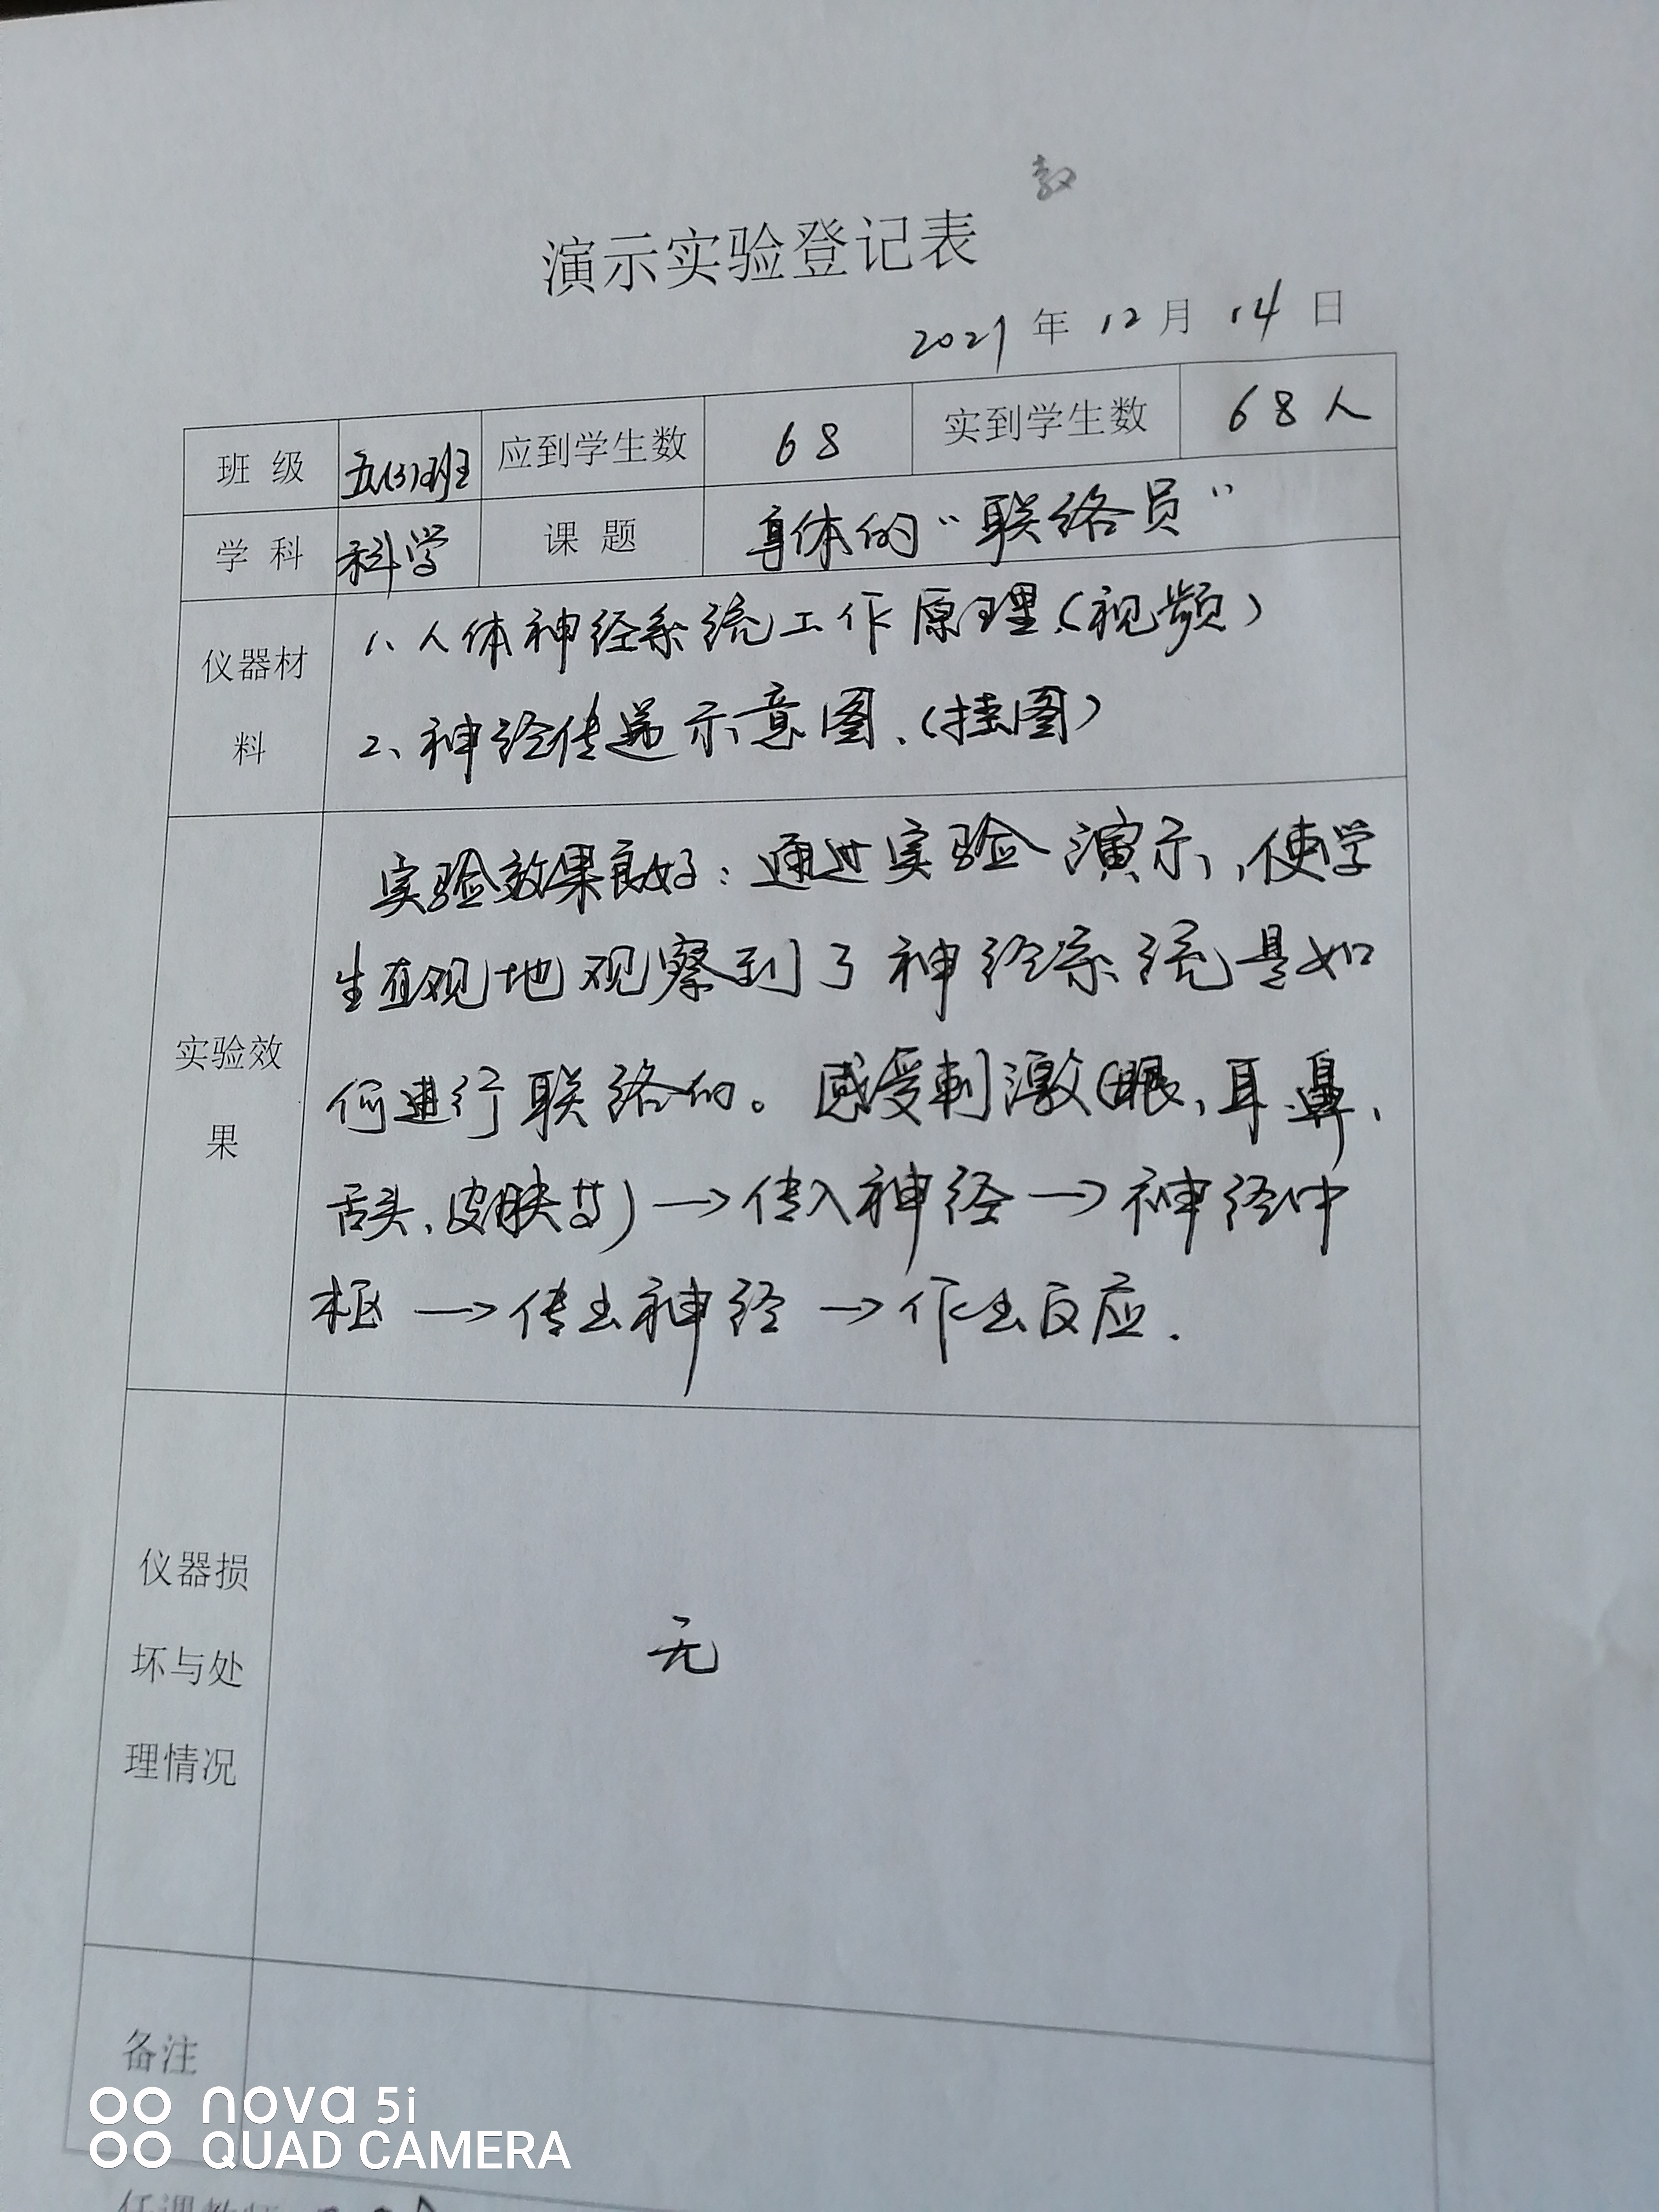 教
演示实验登记表
2021年12月14日
班 级 五(3)班 应到学生数 68 实到学生数 68人
学 科 科学 课 题 身体的“联络员”
仪器材
料
1、人体神经系统工作原理(视频)
2、神经传递示意图、(挂图)
实验效
果
实验效果良好:通过实验演示,使学
生直观地观察到了神经系统是如
何进行联络的。感受刺激(眼、耳、鼻、
舌头、皮肤等)→传入神经→神经中
枢→传出神经→作出反应.
仪器损
坏与处
理情况
无
备注
nova 5i
QUAD CAMERA
任课教师